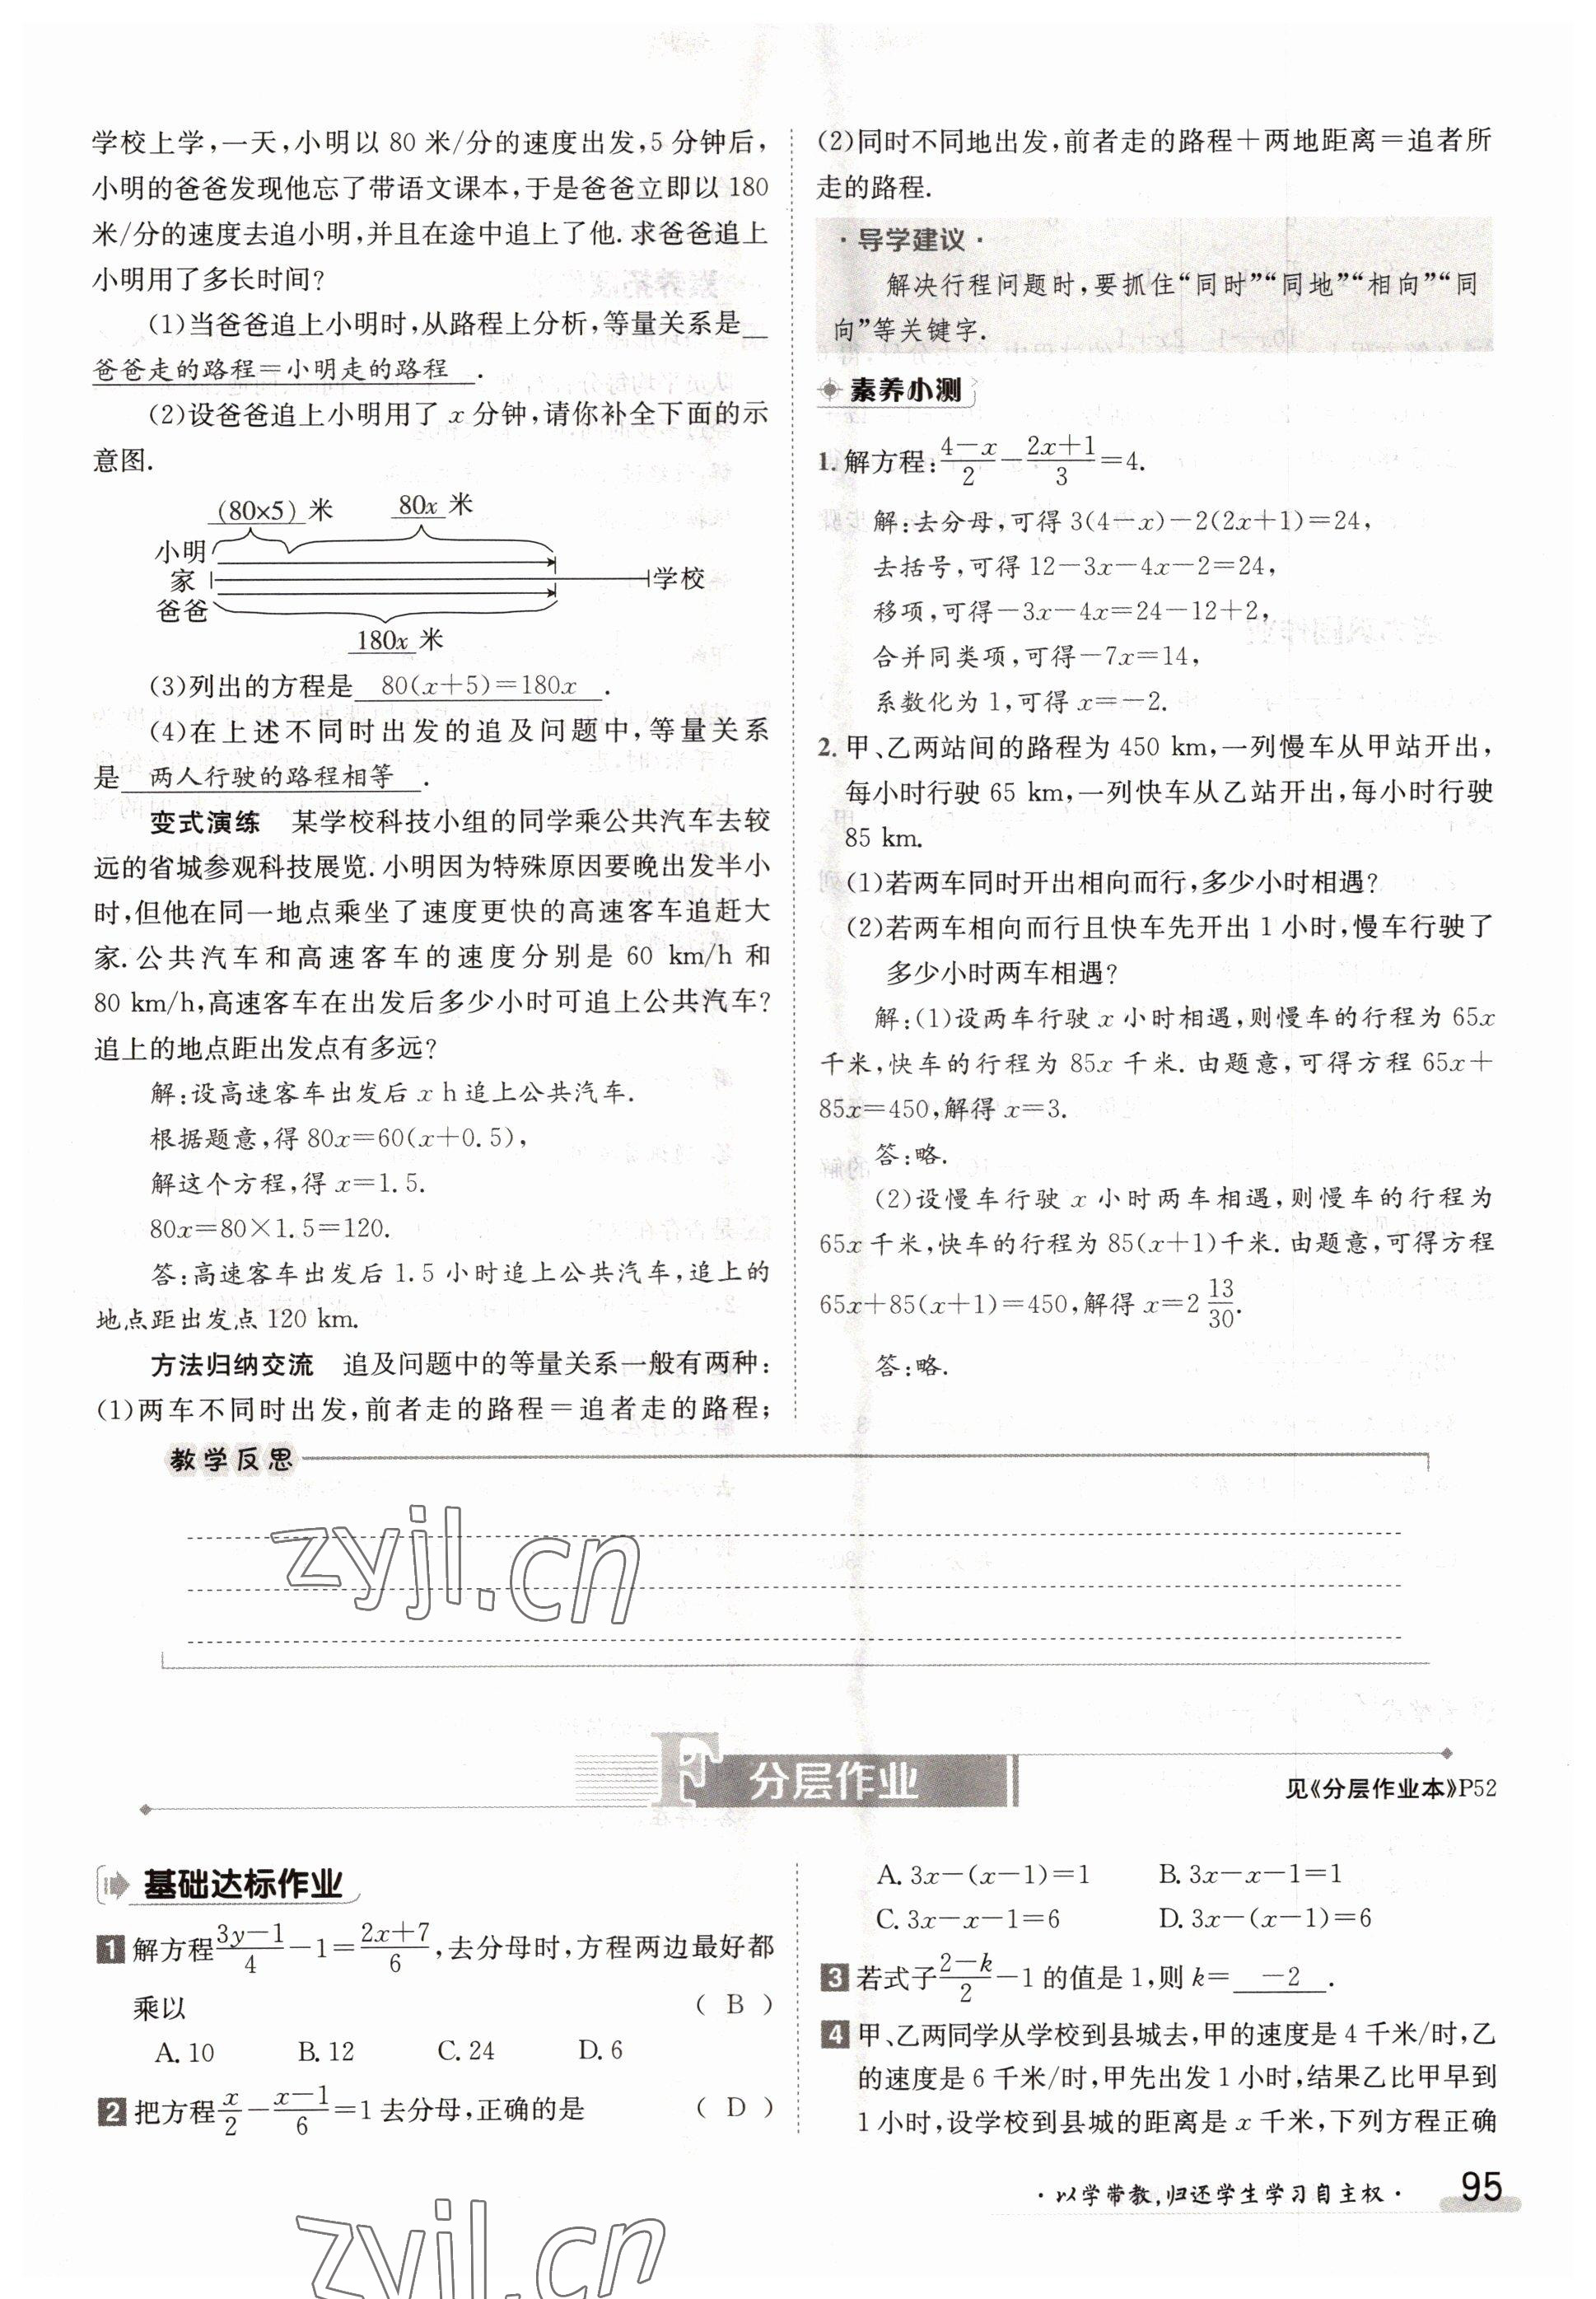 学校上学,一天,小明以 80 米/分的速度出发,5 分钟后,
小明的爸爸发现他忘了带语文课本,于是爸爸立即以 180
米/分的速度去追小明,并且在途中追上了他. 求爸爸追上
小明用了多长时间?
(1)当爸爸追上小明时,从路程上分析,等量关系是
爸爸走的路程=小明走的路程 .
(2)设爸爸追上小明用了 x 分钟,请你补全下面的示
意图.
(80×5) 米 80x 米
小明
家 学校
爸爸
180x 米
(3)列出的方程是 80(x+5)=180x .
(4)在上述不同时出发的追及问题中,等量关系
是 两人行驶的路程相等 .
变式演练 某学校科技小组的同学乘公共汽车去较
远的省城参观科技展览. 小明因为特殊原因要晚出发半小
时,但他在同一地点乘坐了速度更快的高速客车追赶大
家. 公共汽车和高速客车的速度分别是 60 km/h 和
80 km/h,高速客车在出发后多少小时可追上公共汽车?
追上的地点距出发点有多远?
解:设高速客车出发后 x h 追上公共汽车.
根据题意,得 80x=60(x+0.5),
解这个方程,得 x=1.5.
80x=80×1.5=120.
答:高速客车出发后 1.5 小时追上公共汽车,追上的
地点距出发点 120 km.
方法归纳交流 追及问题中的等量关系一般有两种:
(1)两车不同时出发,前者走的路程=追者走的路程;
(2)同时不同地出发,前者走的路程+两地距离=追者所
走的路程.
·导学建议·
解决行程问题时,要抓住“同时”“同地”“相向”“同
向”等关键字.
素养小测
1. 解方程:\frac{4-x}{2}-\frac{2x+1}{3}=4.
解:去分母,可得 3(4-x)-2(2x+1)=24,
去括号,可得 12-3x-4x-2=24,
移项,可得-3x-4x=24-12+2,
合并同类项,可得-7x=14,
系数化为 1,可得 x=-2.
2. 甲、乙两站间的路程为 450 km,一列慢车从甲站开出,
每小时行驶 65 km,一列快车从乙站开出,每小时行驶
85 km.
(1)若两车同时开出相向而行,多少小时相遇?
(2)若两车相向而行且快车先开出 1 小时,慢车行驶了
多少小时两车相遇?
解:(1)设两车行驶 x 小时相遇,则慢车的行程为 65x
千米,快车的行程为 85x 千米. 由题意,可得方程 65x+
85x=450,解得 x=3.
答:略.
(2)设慢车行驶 x 小时两车相遇,则慢车的行程为
65x 千米,快车的行程为 85(x+1)千米. 由题意,可得方程
65x+85(x+1)=450,解得 x=2\frac{13}{30}.
答:略.
教学反思
zyjl.cn
F 分层作业
见《分层作业本》P52
基础达标作业
1 解方程\frac{3y-1}{4}-1=\frac{2x+7}{6},去分母时,方程两边最好都
乘以 ( B )
A. 10 B. 12 C. 24 D. 6
2 把方程\frac{x}{2}-\frac{x-1}{6}=1 去分母,正确的是 ( D )
A. 3x-(x-1)=1 B. 3x-x-1=1
C. 3x-x-1=6 D. 3x-(x-1)=6
3 若式子\frac{2-k}{2}-1 的值是 1,则 k= -2 .
4 甲、乙两同学从学校到县城去,甲的速度是 4 千米/时,乙
的速度是 6 千米/时,甲先出发 1 小时,结果乙比甲早到
1 小时,设学校到县城的距离是 x 千米,下列方程正确
·以学带教,归还学生学习自主权· 95
zyjl.cn